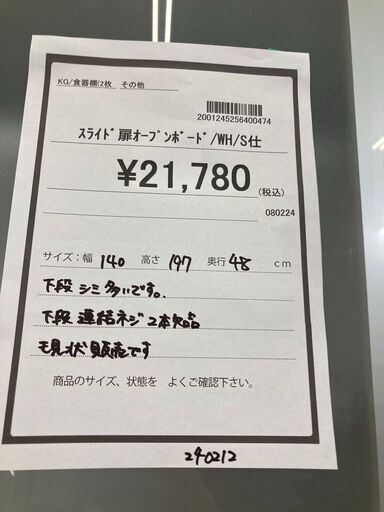 KG/食器棚(2枚　その他
2001245256400474
ｽﾗｲﾄﾞ扉ｵｰﾌﾟﾝﾎﾞｰﾄﾞ/WH/S仕
¥21,780(税込)
080224
サイズ：幅 140 高さ 197 奥行 48 cm
下段 シミ 多いです。
下段 連結ネジ 2本欠品
現状販売です
商品のサイズ、状態を　よくご確認下さい。
240212